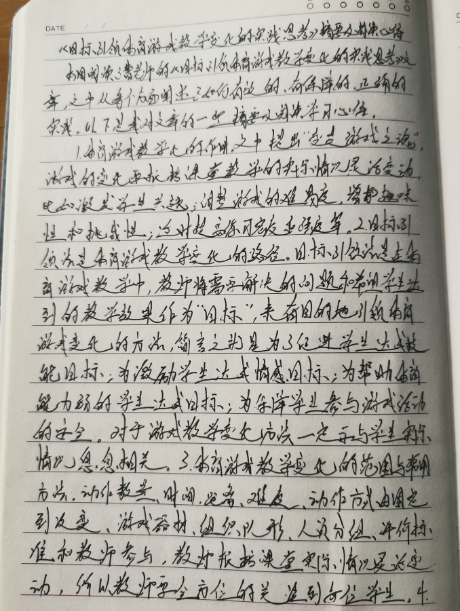 DATE
《目标引领体育游戏教学变化的实践思考》摘要及学习心得
本周阅读了费老师的《目标引领体育游戏教学变化的实践思考》文
章,文中从每个方面阐述了如何有效的、有保障的、正确的
实践。以下是我对文章的一些摘要及阅读学习心得。
1.体育游戏教学变化的作用。文中提出"变是游戏之源",
游戏的变化要根据课堂教学的实际情况灵活变动,
比如激发学生兴趣;调整游戏的难易度,增加趣味
性和挑战性;
2.目标引
领法是体育游戏教学变化的路径。目标引领法是在体
育游戏教学中,教师将需要解决的问题和希望学生达
到的教学效果作为"目标",来有目的地引领体育
游戏变化的方法,简言之就是为了促进学生达成技
能目标;为激励学生达成情感目标;为帮助体育
能力弱的学生达成目标;为保障学生参与游戏活动
的安全。对于游戏教学变化方法一定要与学生实际
情况息息相关。3.体育游戏教学变化的范围与常用
方法。动作数量、时间、远度、难度、动作方式由固定
到改变、游戏器材、组织队形、人员分组、评价标
准和教师参与,教师根据课堂实际情况灵活变
动,所以教师要全方位的关注到每位学生。4.